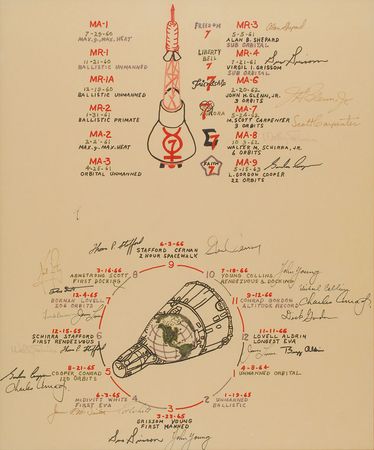 MA-1
7-29-60
MAX.q, MAX. HEAT
MR-1
11-21-60
BALLISTIC UNMANNED
MR-1A
12-19-60
BALLISTIC UNMANNED
MR-2
1-31-61
BALLISTIC PRIMATE
MA-2
2-21-61
MAX.q, MAX. HEAT
MA-3
4-25-61
ORBITAL UNMANNED
FREEDOM
7
LIBERTY
BELL
7
Friendship
7
7
7
FAITH
7
MR-3
5-5-61
ALAN B. SHEPARD
SUB ORBITAL
Alan Shepard
MR-4
7-21-61
VIRGIL I. GRISSOM
SUB ORBITAL
Gus Grissom
MA-6
2-20-62
JOHN H. GLENN, JR.
3 ORBITS
MA-7
5-24-62
M. SCOTT CARPENTER
3 ORBITS
Scott Carpenter
MA-8
10-3-62
WALTER M. SCHIRRA, JR
6 ORBITS
MA-9
5-15-63
L. GORDON COOPER
22 ORBITS
Gordon Cooper
Thom P. Stafford
6-3-66
STAFFORD CERNAN
2 HOUR SPACEWALK
9
3-16-66
ARMSTRONG SCOTT
FIRST DOCKING
8
7-18-66
YOUNG COLLINS
RENDEZVOUS & DOCKING
10
John Young
12-4-65
BORMAN LOVELL
206 ORBITS
7
9-12-66
CONRAD GORDON
ALTITUDE RECORD
11
Charles Conrad Jr
Dick Gordon
12-15-65
SCHIRRA STAFFORD
FIRST RENDEZVOUS
6
Thom P. Stafford
11-11-66
LOVELL ALDRIN
LONGEST EVA
12
Buzz Aldrin
8-21-65
COOPER CONRAD
120 ORBITS
5
Gordon Cooper
Charles Conrad Jr
4-8-64
UNMANNED ORBITAL
1
6-3-65
McDIVITT WHITE
FIRST EVA
4
1-19-65
UNMANNED
BALLISTIC
2
3
3-23-65
GRISSOM YOUNG
FIRST MANNED
Gus Grissom
John Young